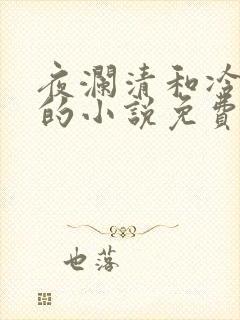 夜瀾清和冷
的小說免費
也落